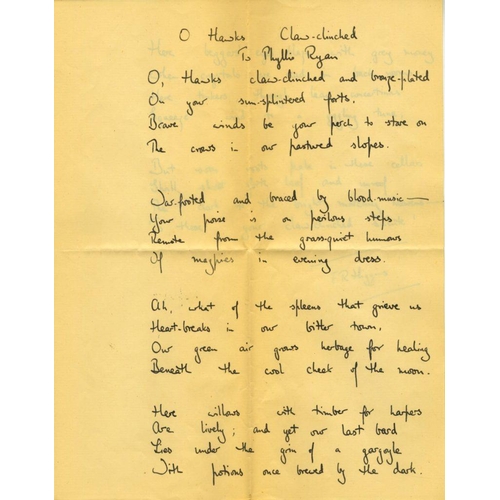 O Hawks Claw-clinched
To Phyllis Ryan
O, Hawks claw-clinched and bronze-plated
On your sun-splintered forts.
Brave winds be your perch to stare on
The crows in our pastured slopes.
War-footed and braced by blood-music—
Your poise is on perilous steps
Remote from the grass-quiet humours
Of magpies in evening dress.
Ah, what of the spleens that grieve us
Heart-breaks in our bitter town.
Our green air grows herbage for healing
Beneath the cool cheek of the moon.
Here willows with timber for harpers
Are lively; and yet our last bard
Lies under the grin of a gargoyle
With potions once brewed by the dark.